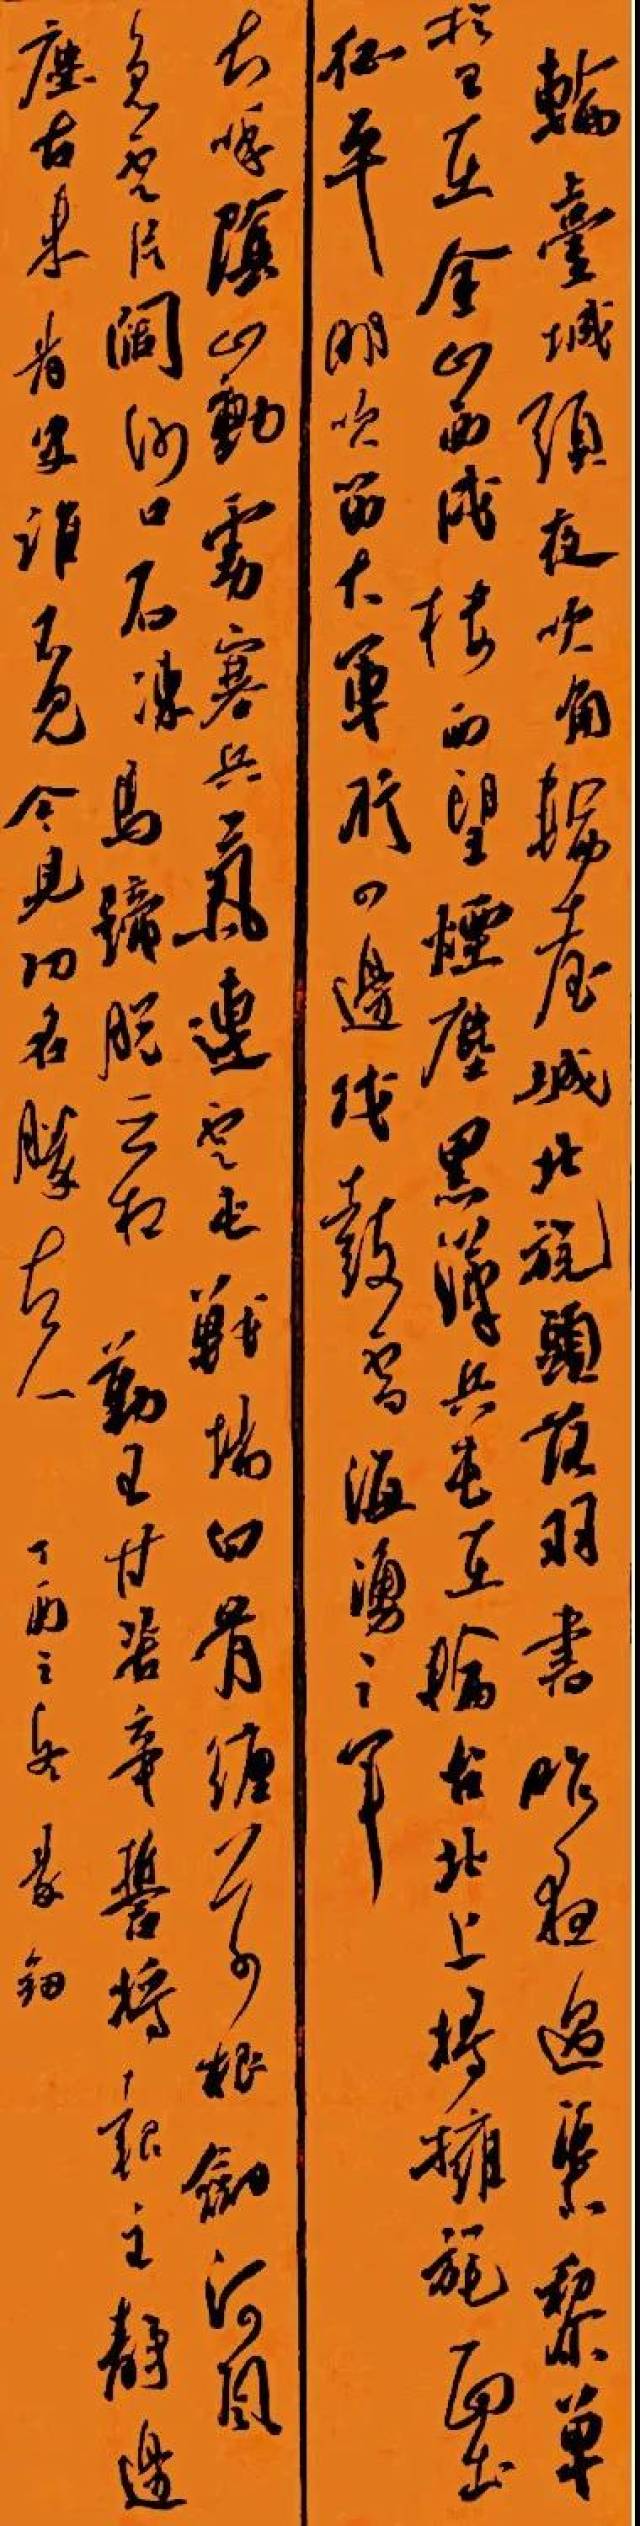 輪臺城頭夜吹角輪臺城北旄頭落羽書昨夜過渠黎單
於已在金山西戍樓西望煙塵黑漢兵屯在輪台北上將擁旄西出
征平明吹笛大軍行四邊伐鼓雪海湧三軍
大呼陰山動虜塞兵氣連雲屯戰場白骨纏草根劍河風
急雪片闊沙口石凍馬蹄脫亞相勤王甘苦辛誓將報主靜邊
塵古來青史誰不見今見功名勝古人
丁酉之冬